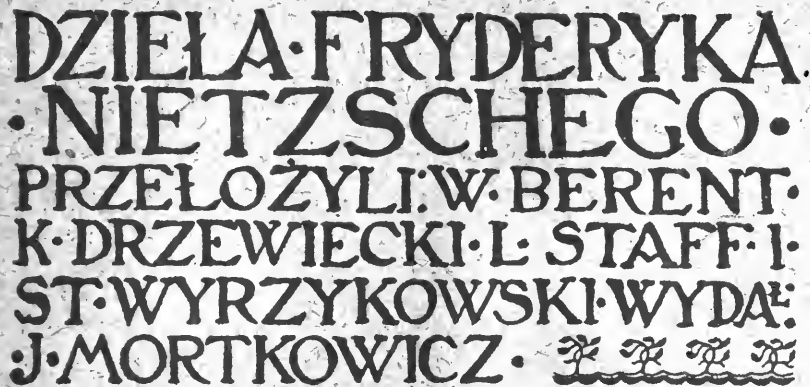 DZIEŁA·FRYDERYKA
·NIETZSCHEGO·
PRZEŁOŻYLI: W· BERENT·
K·DRZEWIECKI·L· STAFF· I·
ST·WYRZYKOWSKI·WYDAŁ:
·J·MORTKOWICZ·